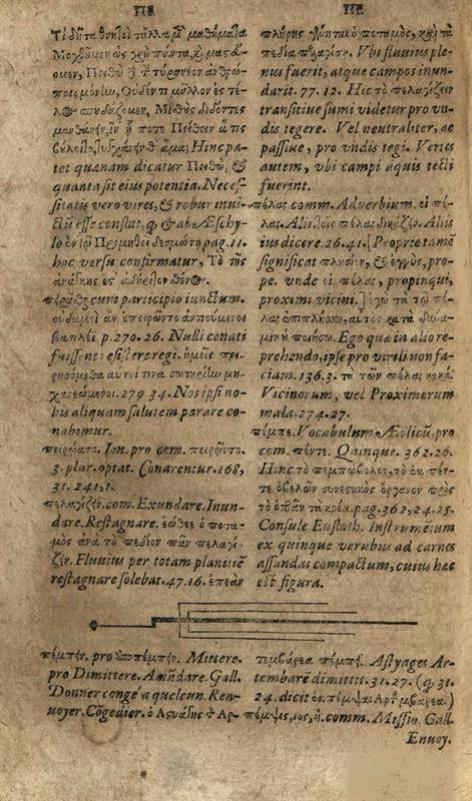 ΠΕ
Τί δῆτα θνητοὶ τἄλλα μὲν μαθήματα
Μοχθοῦμεν ὡς χρὴ πάντα, καὶ μας
ομεν, Πειθὼ
Οὐδέν τι μᾶλλον ἐς τέ-
λος σπουδάζομεν, Μισθὸς διδόντες
μανθάνειν, ἵν᾽ ἦ ποτε Πείθειν ἅ τις
βούλοιτο, τυγχάνειν θ᾽ ἅμα; Hinc pa-
tet quænam dicatur Πειθὼ, &
quanta sit eius potentia. Neces-
sitatis vero vires, & robur inui-
ctū esse constat, & ab Æschy-
lo ἐν τῷ Προμηθεῖ δεσμώτῃ pag. 11.
hoc versu confirmatur, Τὸ τῆς
ἀνάγκης ἔστ᾽ ἀδήριτον σθένος.
cum participio iunctum.
οὐδαμοὶ ἂν ἐπειρῶντο ἀντιούμενοι
βασιλέϊ p. 270. 26. Nulli conati
fuissent resistere regi. ἡμεῖς πει-
ρησόμεθα
279 34. Nos ipsi no-
bis aliquam salutem parare co-
nabimur.
πειρῴατο. Ion. pro com. πειρῷντο.
3. plur. optat. Conarentur. 168,
31. 241, 1.
πελαγίζειν. com. Exundare. Inun-
dare. Restagnare. ἐώθεε ὁ ποτα-
μὸς ἀνὰ τὸ πεδίον πᾶν πελαγί-
ζειν. Fluuius per totam planitiē
restagnare solebat. 47. 16. ἐπεὰν
ΠΕ
πλήρης γένηται ὁ ποταμὸς, καὶ τὰ
πεδία πελαγίσῃ. Vbi fluuius ple-
nus fuerit, atque campos inun-
darit. 77. 12. Hic τὸ πελαγίζειν
transitiue sumi videtur pro vn-
dis tegere. Vel neutraliter, ac
passiue, pro vndis tegi. Vertes
autem, vbi campi aquis tecti
fuerint.
πέλας comm. Aduerbium. εἰ πέ-
λας. Aliis
ius dicere. 26. 41. Proprie tamē
significat πλησίον, & ἐγγὺς, pro-
pe. vnde οἱ πέλας, propinqui,
proximi vicini. ἐγὼ τὰ τῷ πέ-
λας ἐπιπλήσσω, αὐτὸς κατὰ δύνα-
μιν οὐ ποιήσω. Ego quæ in alio re-
prehendo, ipse pro virili non fa-
ciam. 136. 3. τῶν πέλας κακά.
Vicinorum, vel Proximorum
mala. 274. 27.
πέμπε. Vocabulum Æolicū, pro
com. πέντε. Quinque. 362. 26.
Hinc τὸ πεμπώβολον, τὸ ἐκ πέν-
τε ὀβελῶν συνεστικὸς ὄργανον πρὸς
τὸ ὀπτᾶν τὰ κρέα. pag. 362, 24. 25.
Consule Eustath. Instrumētum
ex quinque verubus ad carnes
assandas compactum, cuius hæc
est figura.
πέμπειν. pro ἀποπέμπειν. Mittere.
pro Dimittere. Amādare. Gall.
Donner congé a quelcun. Ren-
uoyer. Cōgedier. ὁ Ἀστυάγης τ̀ Ἀρ-
τεμβάρεα πέμπει. Astyages Ar-
tembarē dimittit. 31. 27. (& 31.
24. dicit ἐκπέμψαι Ἀρτεμβάρεα.)
πέμψις, ιος, ἡ. comm. Missio. Gall.
Enuoy.